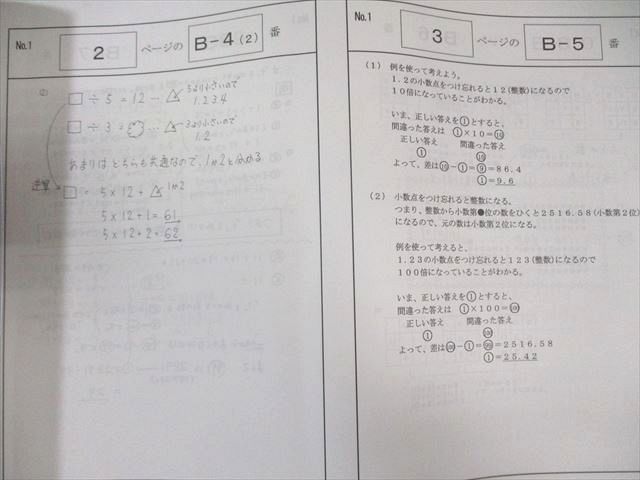 No.1
2 ページの B-4(2) 番
□÷5=12…△ 5より小さいので
1.2.3.4
□÷3=○…△ 3より小さいので
1.2
あまりはどちらも共通なので、1か2と分かる
逆算 □=5×12+△ 1か2
5×12+1=61
5×12+2=62
No.1
3 ページの B-5 番
(1) 例を使って考えよう。
1.2の小数点をつけ忘れると12(整数)になるので
10倍になっていることがわかる。
いま、正しい答えを①とすると、
間違った答えは ①×10=⑩
正しい答え 間違った答え
① ⑩
よって、差は⑩-①=⑨=86.4
①=9.6
(2) 小数点をつけ忘れると整数になる。
つまり、整数から小数第●位の数をひくと2516.58(小数第2位)
になるので、元の数は小数第2位になる。
例を使って考えると、
1.23の小数点をつけ忘れると123(整数)になるので
100倍になっていることがわかる。
いま、正しい答えを①とすると、
間違った答えは ①×100=(100)
正しい答え 間違った答え
① (100)
よって、差は(100)-①=(99)=2516.58
①=25.42